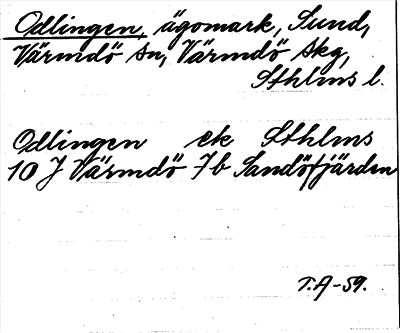 Odlingen, ägomark, Sund,
Värmdö sn, Värmdö skg,
Sthlms l.
Odlingen ek Sthlms
10 J Värmdö 7b Sandöfjärden
T.A-59.